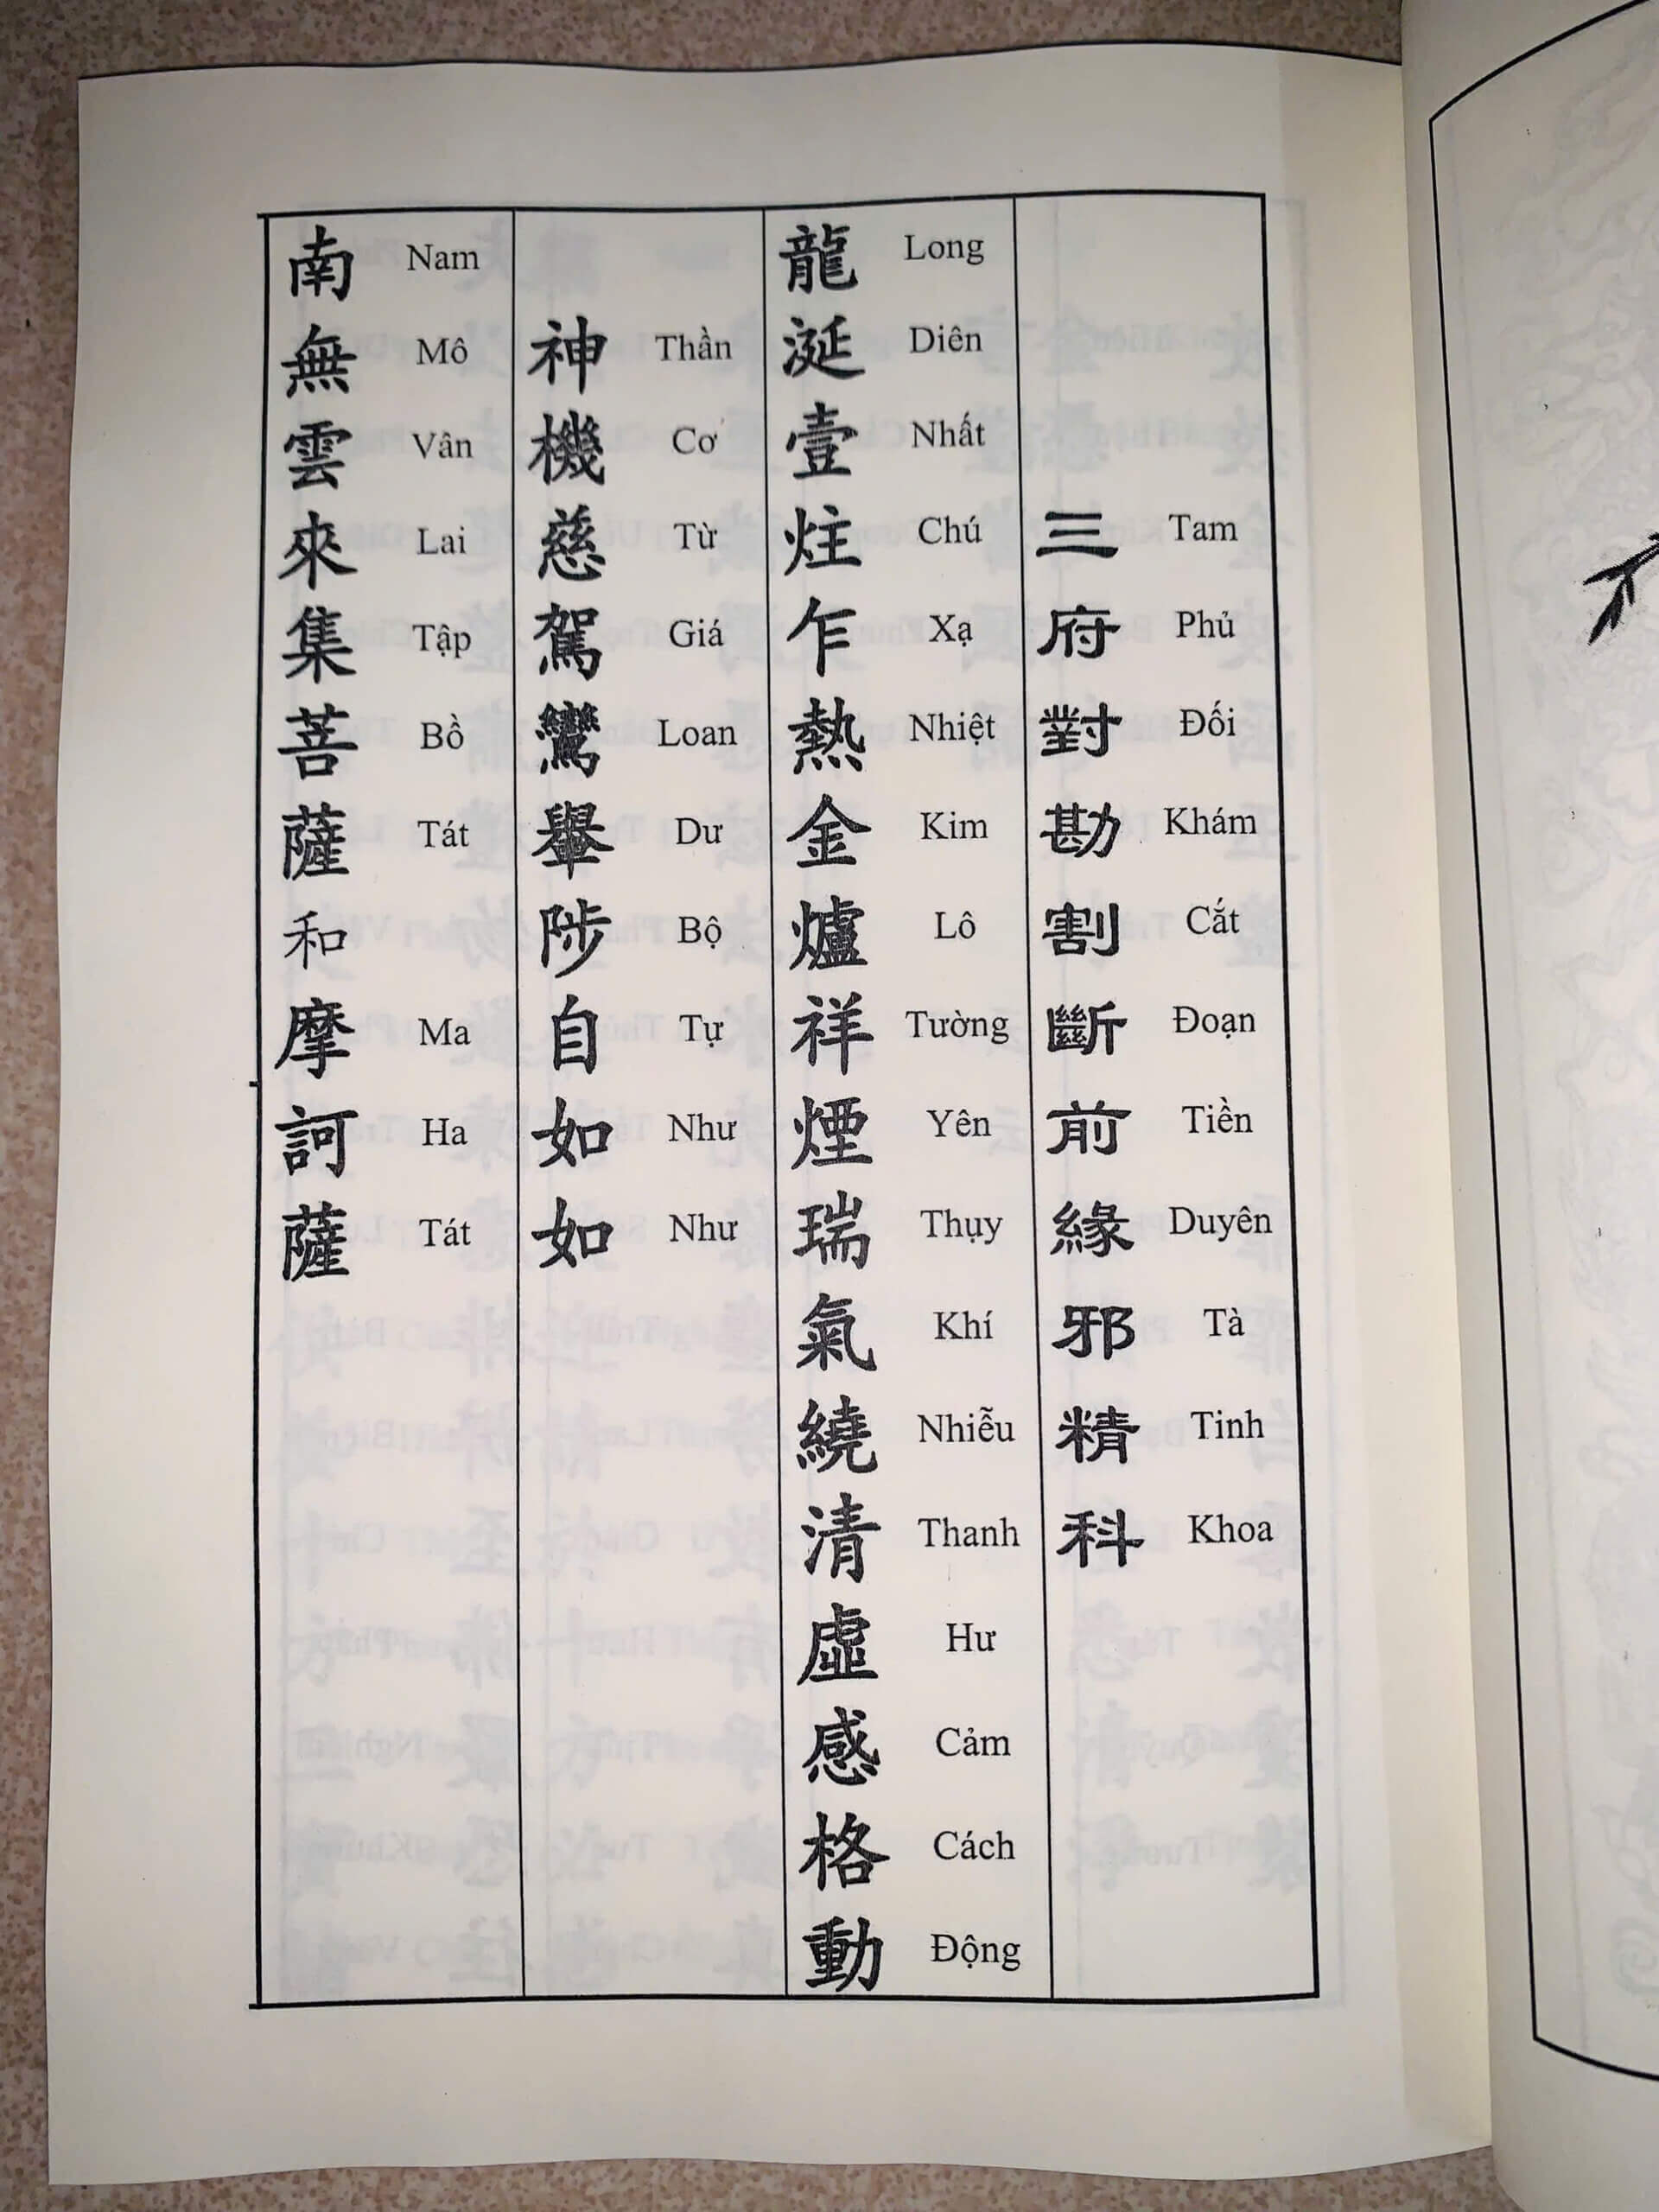 三府對勘割斷前緣邪精科
Tam Phủ Đối Khám Cắt Đoạn Tiền Duyên Tà Tinh Khoa
龍涎壹炷乍熱金爐祥煙瑞氣繞清虛感格動
Long Diên Nhất Chú Xạ Nhiệt Kim Lô Tường Yên Thụy Khí Nhiễu Thanh Hư Cảm Cách Động
神機慈駕鸞轝陟自如如
Thần Cơ Từ Giá Loan Dư Bộ Tự Như Như
南無雲來集菩薩和摩訶薩
Nam Mô Vân Lai Tập Bồ Tát Ma Ha Tát